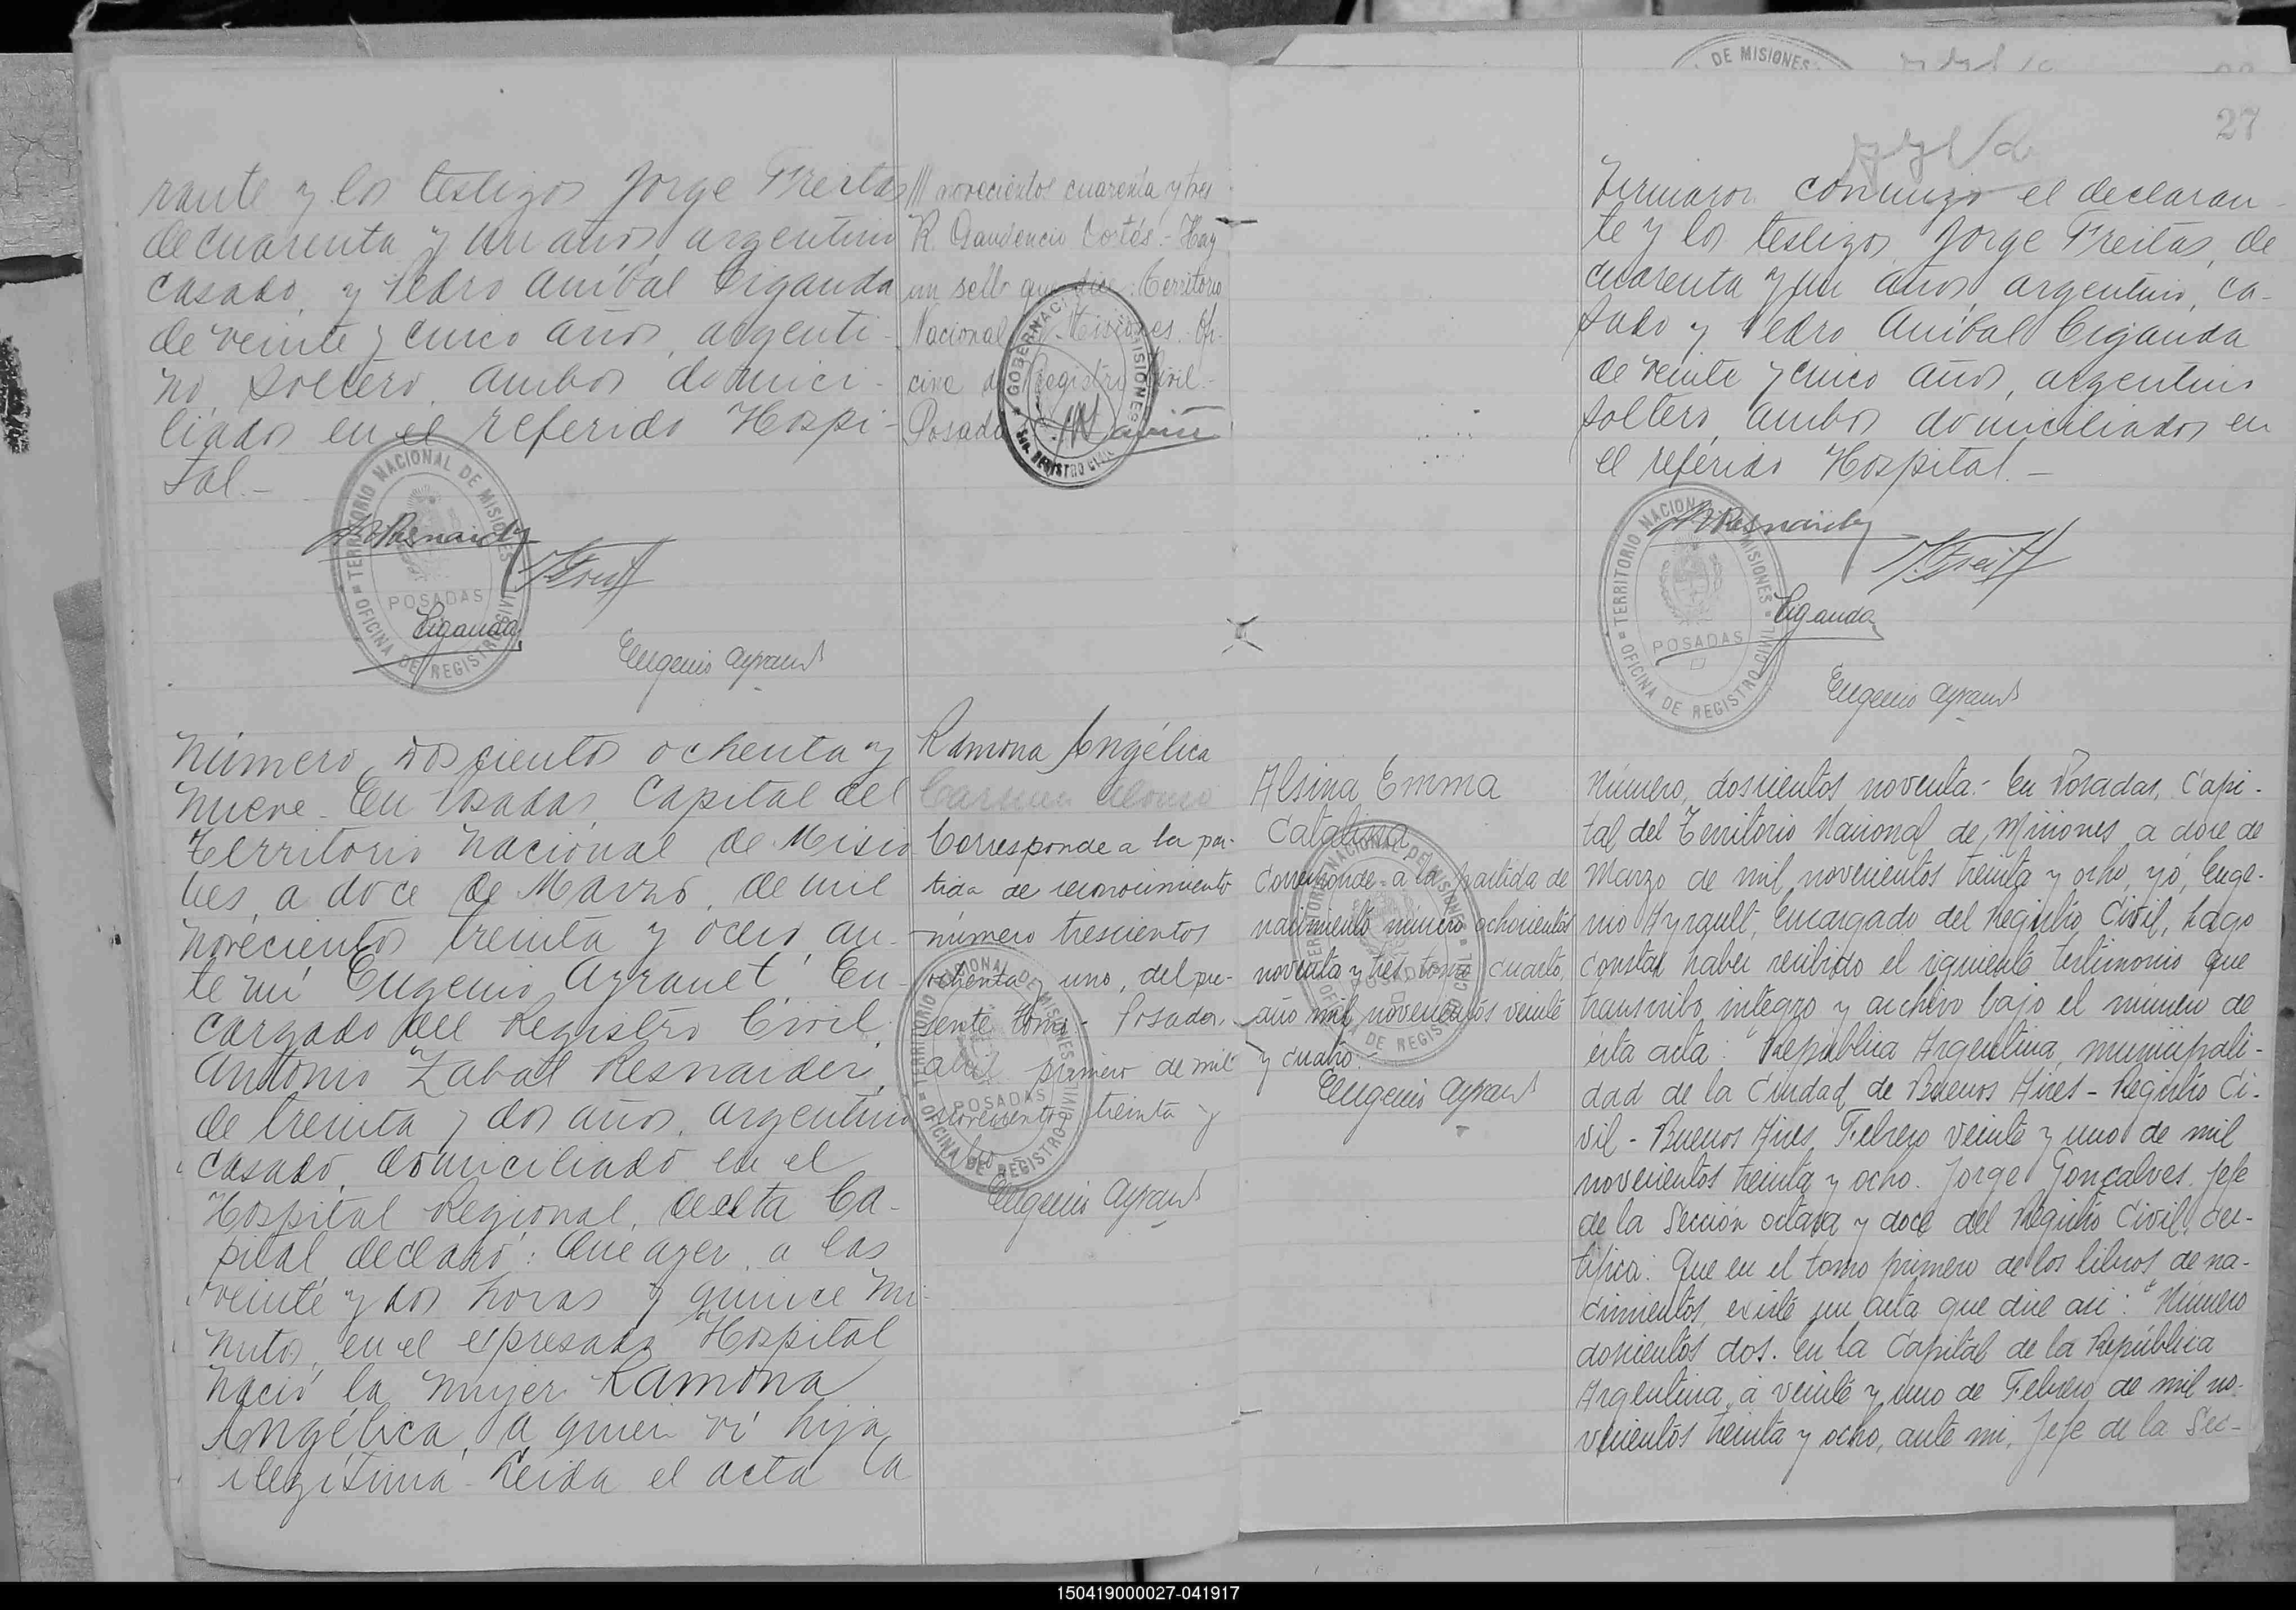 rante y los testigos Jorge Freitas
de cuarenta y un años, argentino
casado, y Pedro Aníbal Ciganda
de veinte y cinco años, argenti-
no, soltero, ambos domici-
liados en el referido Hospi-
tal.-
Ciganda
Eugenio Ayrault
/// novecientos cuarenta y tres
R. Gaudencio Cortés.- Hay
un sello que dice: Territorio
Nacional de Misiones. Ofi-
cina del Registro Civil.-
Posadas
GOBERNACION MISIONES
REGISTRO CIVIL
TERRITORIO NACIONAL DE MISIONES
POSADAS
OFICINA DE REGISTRO CIVIL
Número, doscientos ochenta y
nueve. En Posadas, Capital del
Territorio Nacional de Misio
nes, a doce de Marzo, de mil
novecientos treinta y ocho, an-
te mí Eugenio Ayrault, En-
cargado del Registro Civil,
Antonio Zabal Resnaider,
de treinta y dos años, argentino
casado, domiciliado en el
Hospital Regional, de esta Ca-
pital, declaró: Que ayer, a las
veinte y dos horas y quince mi-
nutos, en el expresado Hospital
nació la mujer Ramona
Angélica, a quien vi hija
ilegítima. Leida el acta la
Ramona Angélica
Carmen Alonso
Corresponde a la par-
tida de reconocimiento
número trescientos
ochenta y uno, del pre-
sente tomo.- Posadas,
abril primero de mil
novecientos treinta y
ocho
Eugenio Ayrault
TERRITORIO NACIONAL DE MISIONES
POSADAS
OFICINA DE REGISTRO CIVIL
DE MISIONES
27
firmaron conmigo el declaran-
te y los testigos, Jorge Freitas, de
cuarenta y un años, argentino, ca-
sado y Pedro Aníbal Ciganda
de veinte y cinco años, argentino
soltero, ambos domiciliados en
el referido Hospital.-
Ciganda
Eugenio Ayrault
TERRITORIO NACIONAL DE MISIONES
POSADAS
OFICINA DE REGISTRO CIVIL
Alsina Emma
Catalina
Corresponde a la partida de
nacimiento número ochocientos
noventa y tres, tomo cuarto,
año mil novecientos veinte
y cuatro.-
Eugenio Ayrault
TERRITORIO NACIONAL DE MISIONES
POSADAS
OFICINA DE REGISTRO CIVIL
Número, doscientos noventa.- En Posadas, Capi-
tal del Territorio Nacional de Misiones, a doce de
Marzo de mil novecientos treinta y ocho, yó, Euge-
nio Ayrault, Encargado del Registro Civil, hago
constar haber recibido el siguiente testimonio que
transcribo integro y archivo bajo el número de
esta acta: "República Argentina, municipali-
dad de la Ciudad de Buenos Aires - Registro Ci-
vil - Buenos Aires, Febrero veinte y uno de mil
novecientos treinta y ocho. Jorge Gonçalves. Jefe
de la Sección octava y doce del Registro Civil, cer-
tifica: Que en el tomo primero de los libros de na-
cimientos, existe un acta que dice asi: "Número
doscientos dos. En la Capital de la República
Argentina, á veinte y uno de Febrero de mil no-
vecientos treinta y ocho, ante mi, Jefe de la Sec-
150419000027-041917